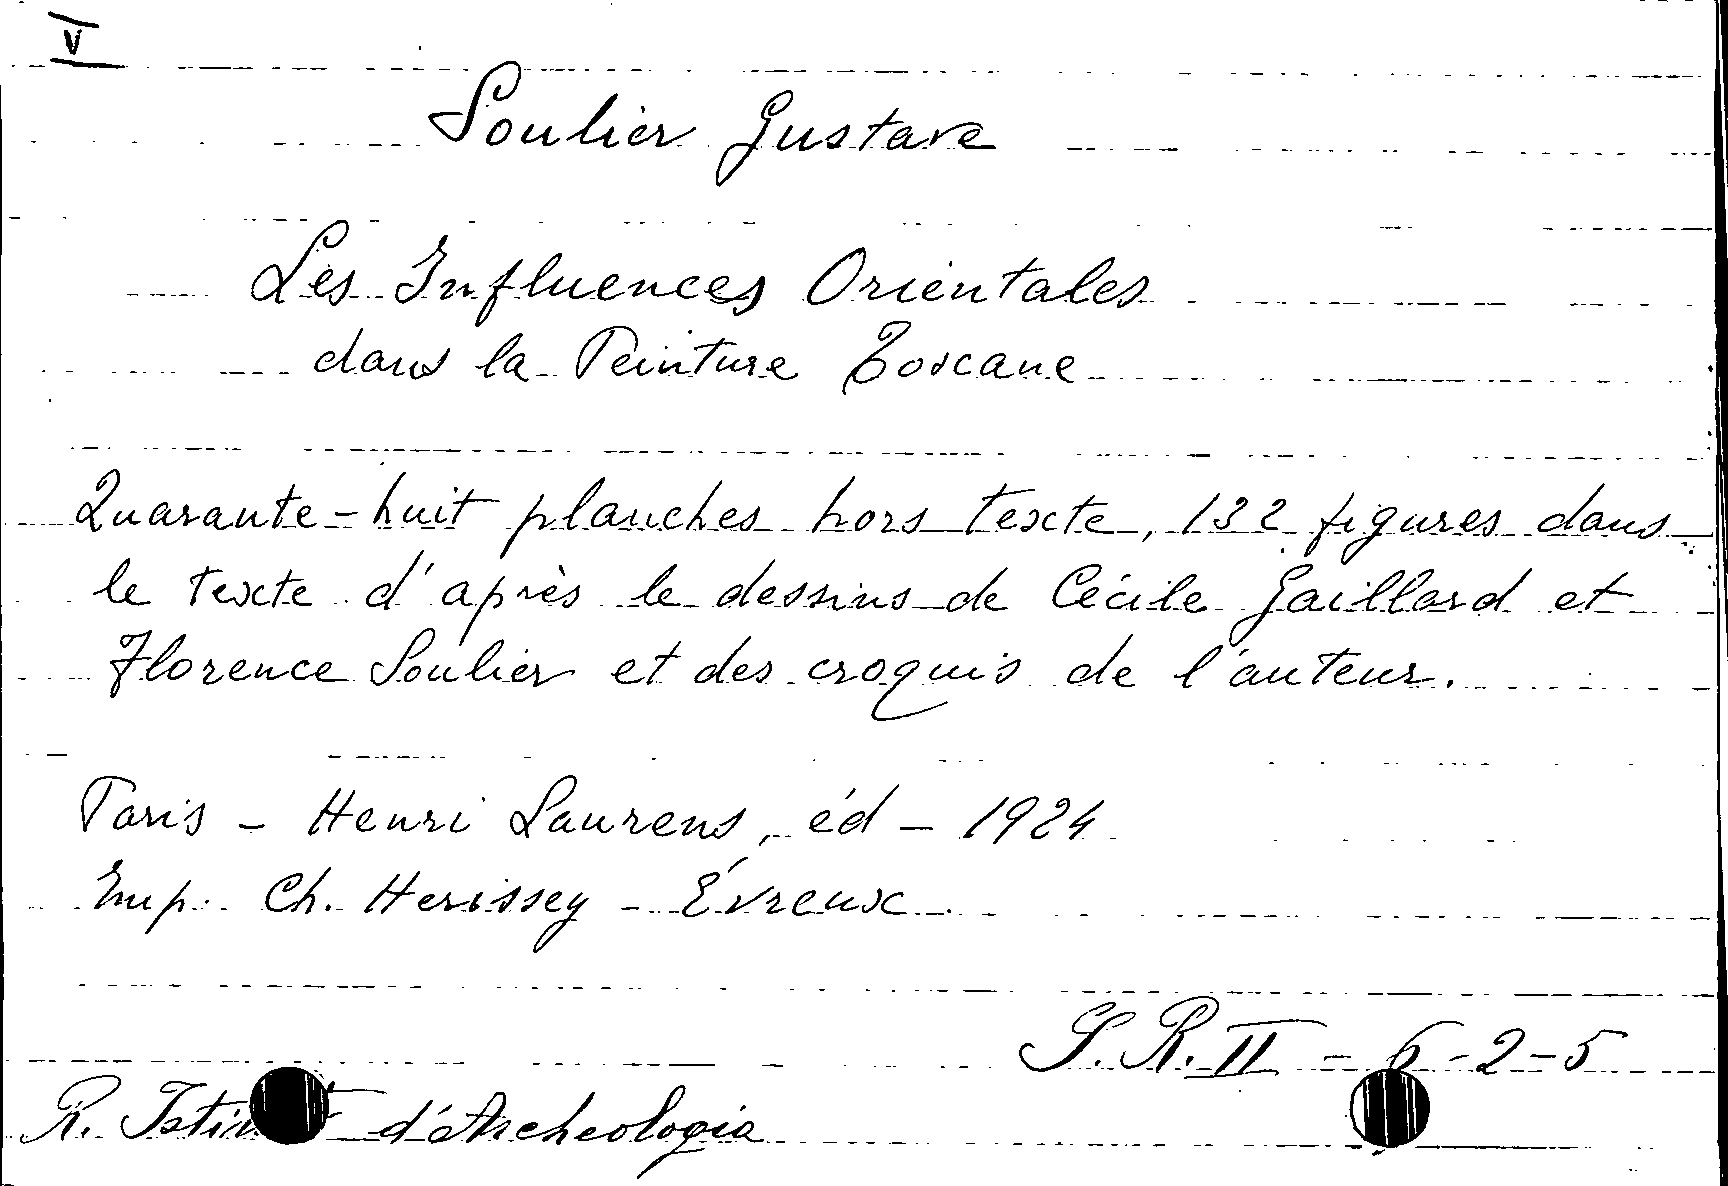 V
Soulier Gustave
Les Influences Orientales
dans la Peinture Toscane
Quarante-huit planches hors texte, 132 figures dans
le texte d'après le dessins de Cécile Gaillard et
Florence Soulier et des croquis de l'auteur.
Paris - Henri Laurens, éd - 1924
Imp. Ch. Herissey - Évreux
S. R. II - 6-2-5
R. d'Archeologia